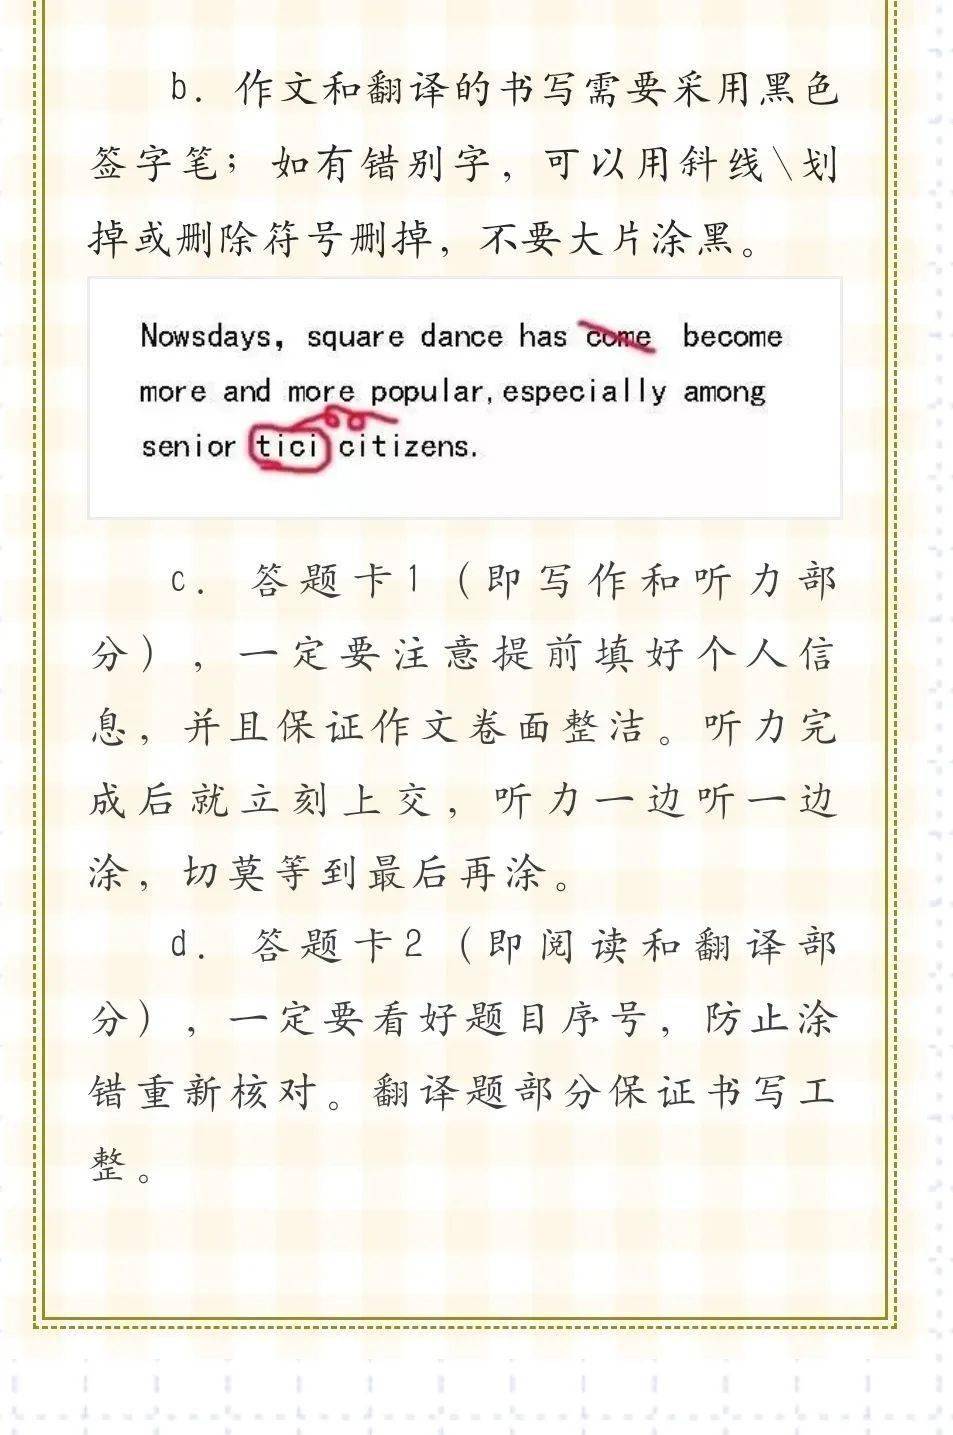 b. 作文和翻译的书写需要采用黑色
签字笔；如有错别字，可以用斜线\划
掉或删除符号删掉，不要大片涂黑。
Nowsdays, square dance has come become
more and more popular,especially among
senior tici citizens.
c. 答题卡1（即写作和听力部
分），一定要注意提前填好个人信
息，并且保证作文卷面整洁。听力完
成后就立刻上交，听力一边听一边
涂，切莫等到最后再涂。
d. 答题卡2（即阅读和翻译部
分），一定要看好题目序号，防止涂
错重新核对。翻译题部分保证书写工
整。